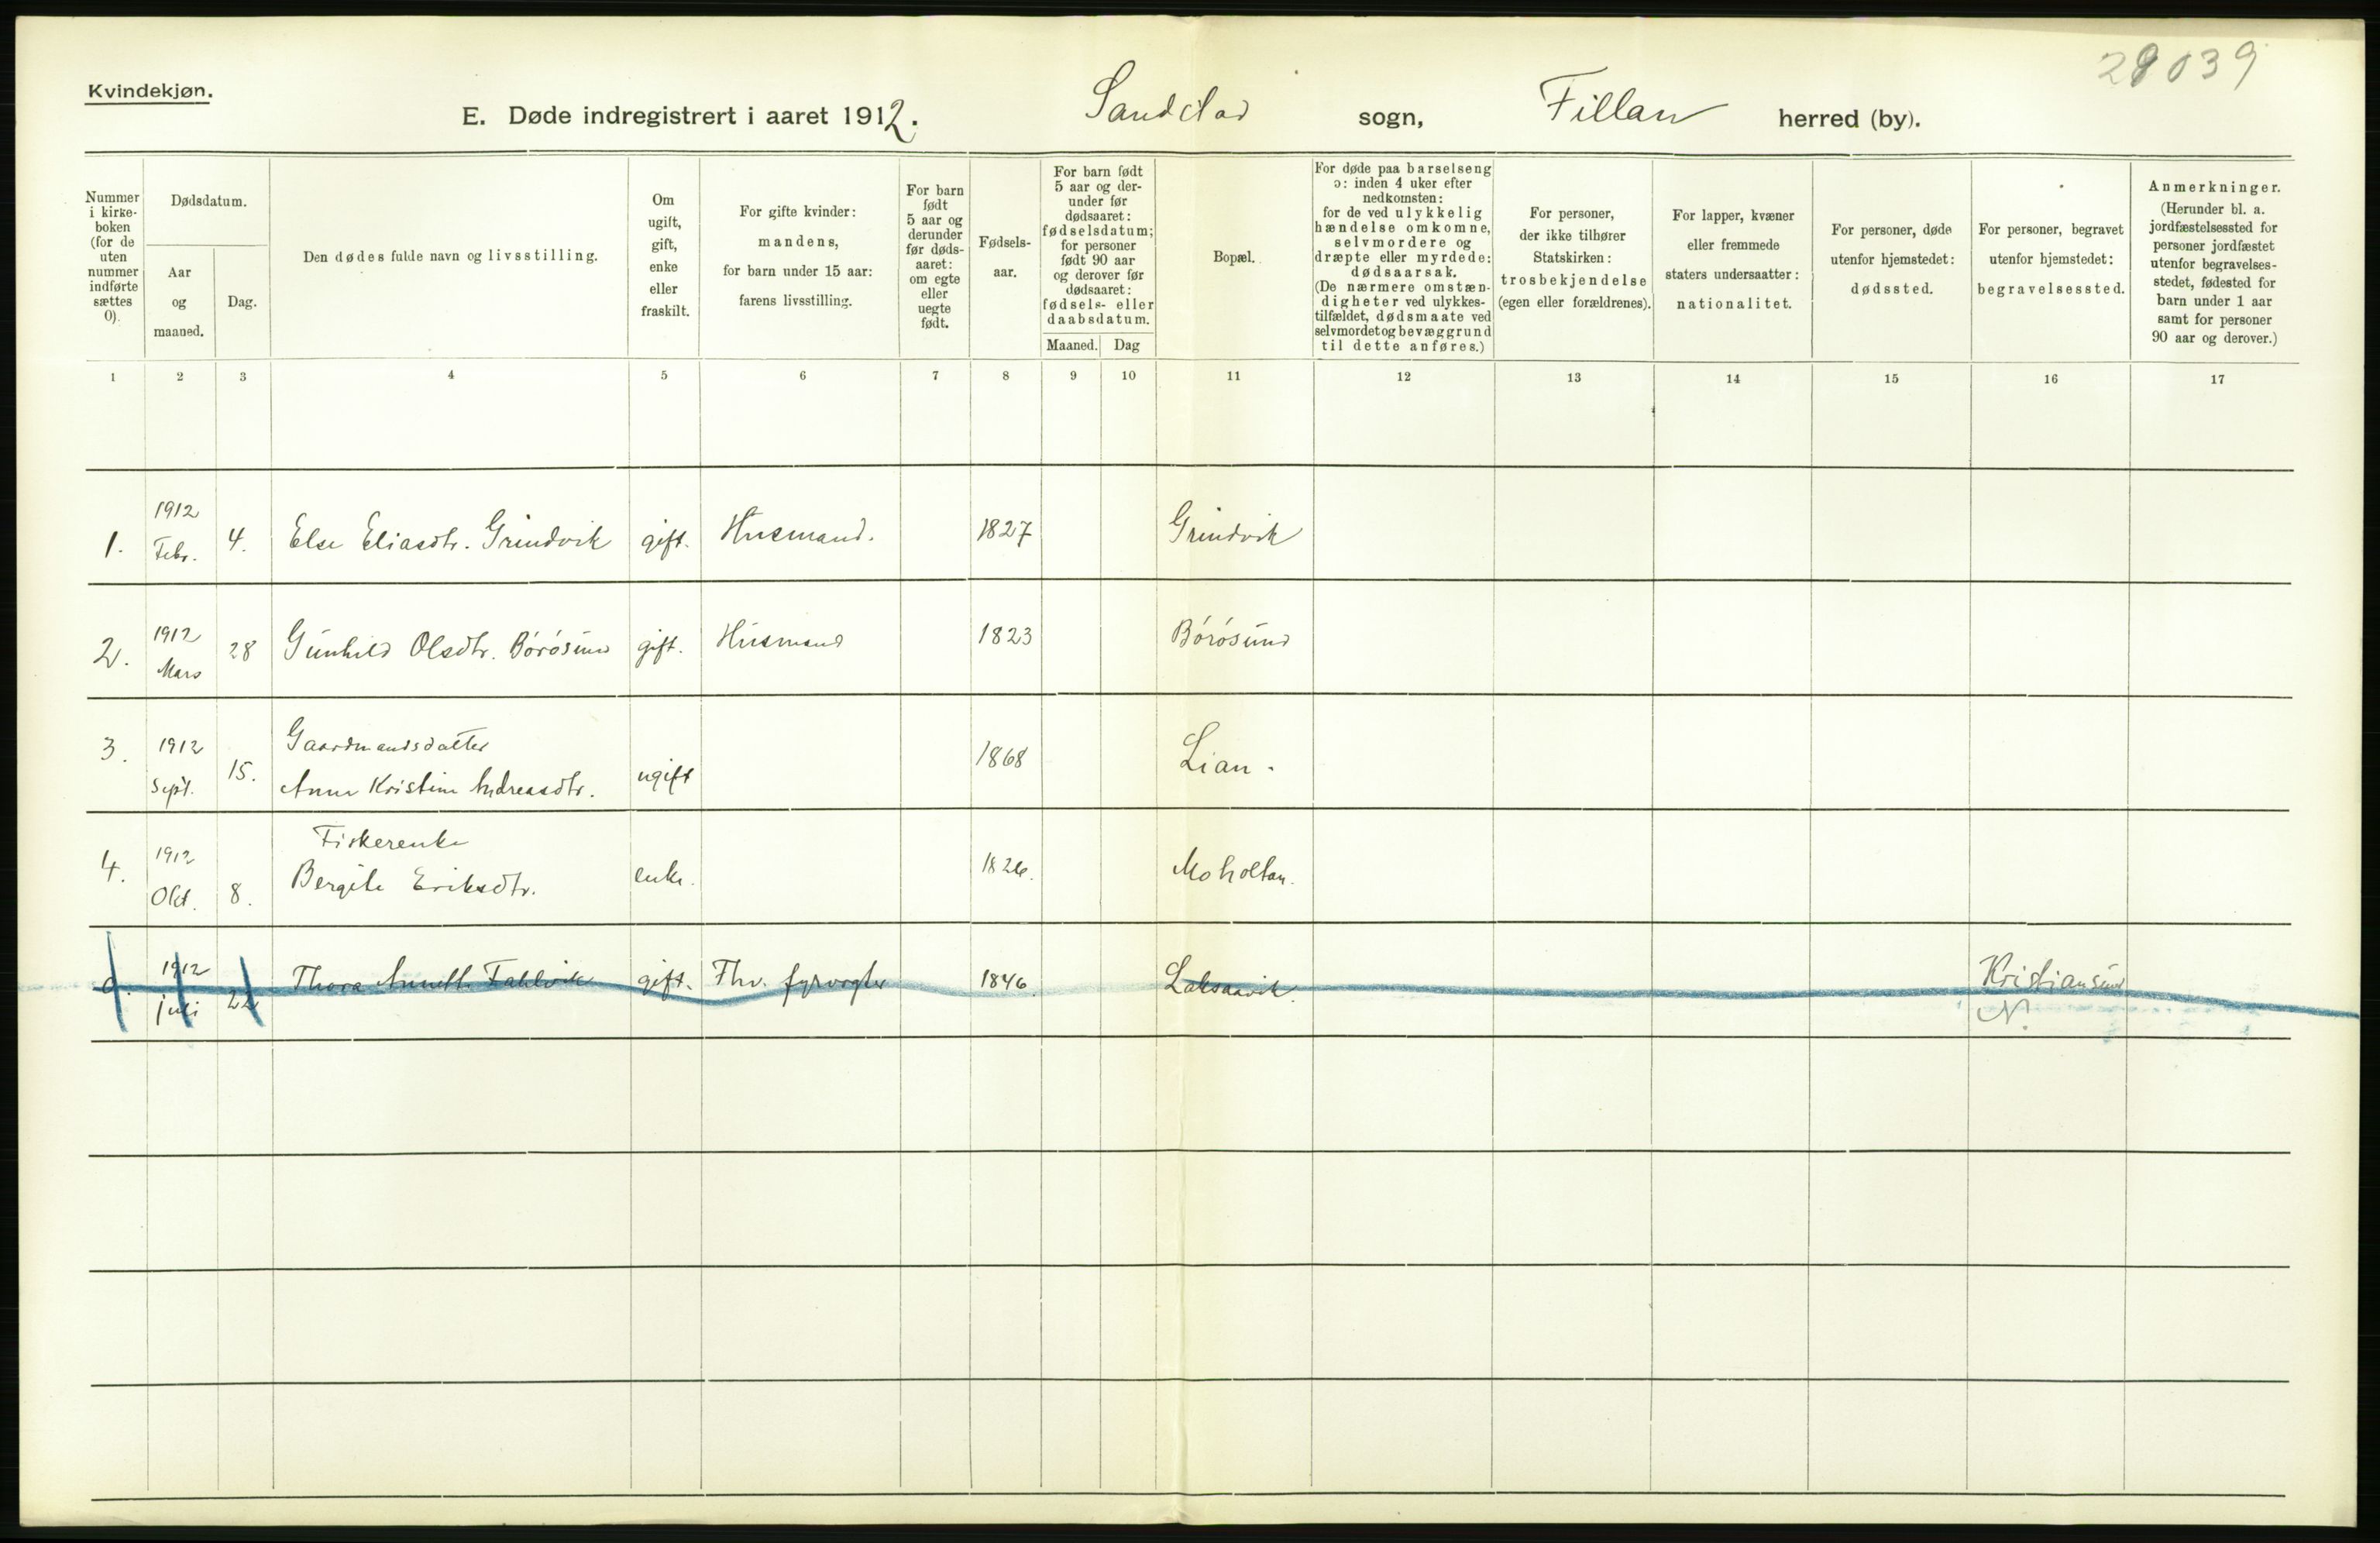 28039
Kvindekjøn.
E. Døde indregistrert i aaret 1912. Sandstad sogn, Fillan herred (by).
Nummer
i kirke-
boken
(for de
uten
nummer
indførte
sættes
0).
Dødsdatum.
Aar
og
maaned.
Dag.
Den dødes fulde navn og livsstilling.
Om
ugift,
gift,
enke
eller
fraskilt.
For gifte kvinder:
mandens,
for barn under 15 aar:
farens livsstilling.
For barn
født
5 aar og
derunder
før døds-
aaret:
om egte
eller
uegte
født.
Fødsels-
aar.
For barn født
5 aar og der-
under før
dødsaaret:
fødselsdatum;
for personer
født 90 aar
og derover før
dødsaaret:
fødsels- eller
daabsdatum.
Maaned. Dag
Bopæl.
For døde paa barselseng
ɔ: inden 4 uker efter
nedkomsten:
for de ved ulykkelig
hændelse omkomne,
selvmordere og
dræpte eller myrdede:
dødsaarsak.
(De nærmere omstæn-
digheter ved ulykkes-
tilfældet, dødsmaate ved
selvmordet og bevæggrund
til dette anføres.)
For personer,
der ikke tilhører
Statskirken:
trosbekjendelse
(egen eller forældrenes).
For lapper, kvæner
eller fremmede
staters undersaatter:
nationalitet.
For personer, døde
utenfor hjemstedet:
dødssted.
For personer, begravet
utenfor hjemstedet:
begravelsessted.
Anmerkninger.
(Herunder bl. a.
jordfæstelsessted for
personer jordfæstet
utenfor begravelses-
stedet, fødested for
barn under 1 aar
samt for personer
90 aar og derover.)
1 2 3 4 5 6 7 8 9 10 11 12 13 14 15 16 17
1912
1. Febr. 4. Else Eliasdtr. Grindvik gift. Husmand. 1827 Grindvik
1912
2. Mars 28 Gunhild Olsdtr. Börösund gift. Husmand 1823 Börösund
Gaardmandsdatter
3. 1912 1868 Lian.
Sept. 15. Anna Kristine Andreasdtr. ugift
Fiskerenke
4. 1912 1826. Moholtan.
Okt. 8. Bergite Eriksdtr. enke.
1912
0. juli 22 Thora Annette gift. Fhv. fyrvogter 1846. Laksaavik. Kristiansund
N.